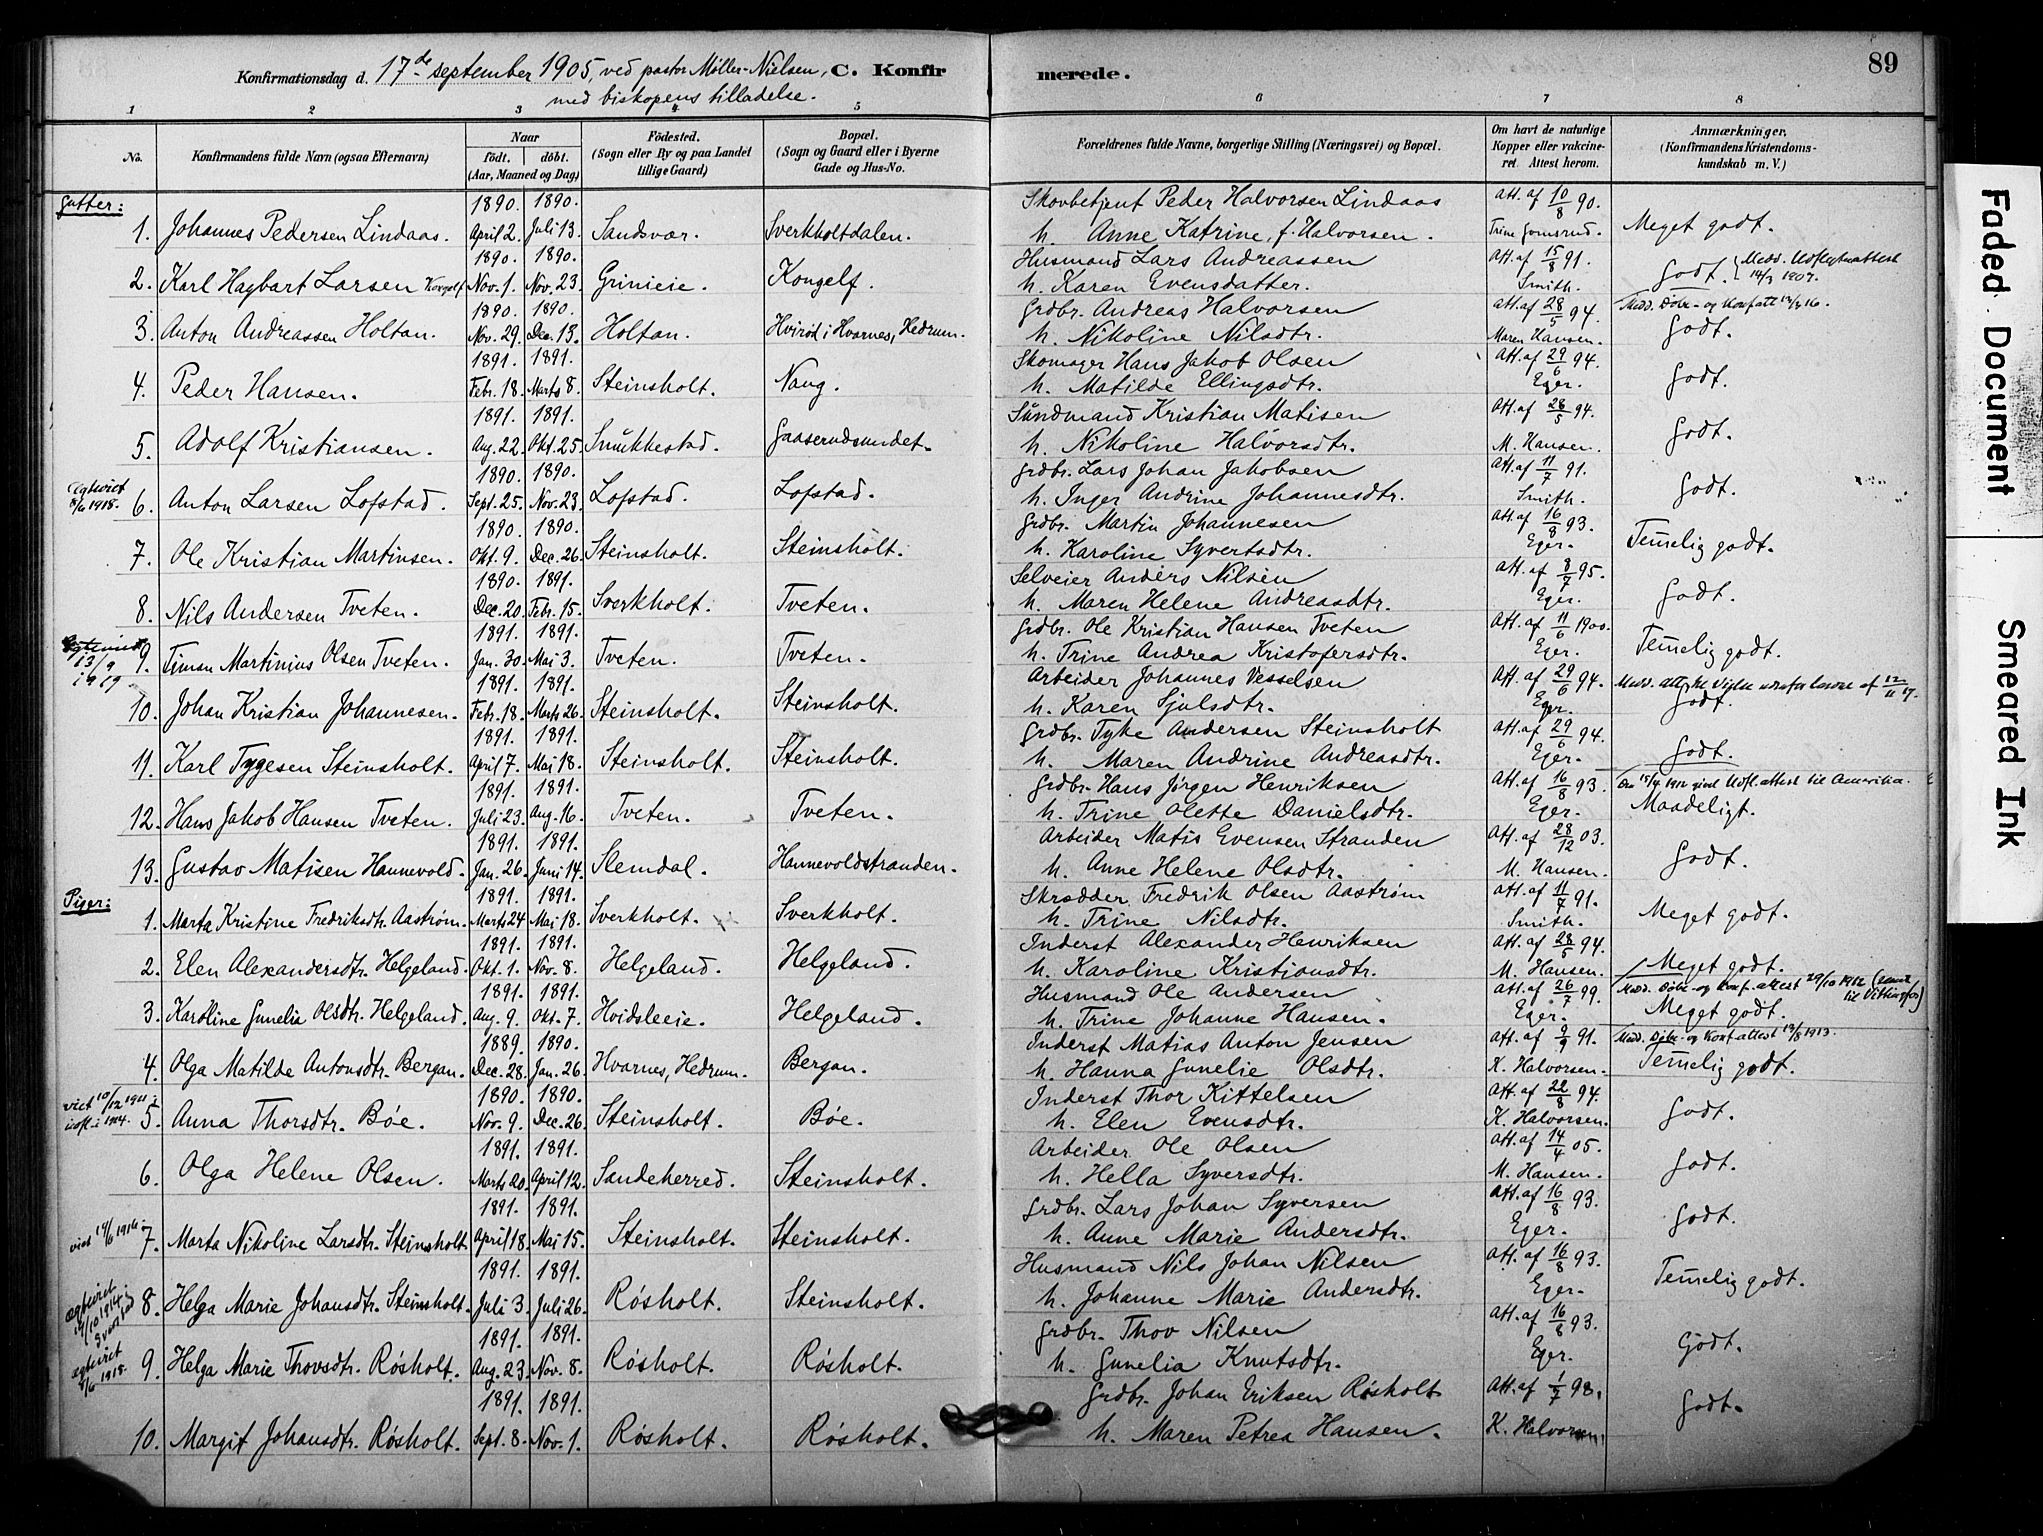 Konfirmationsdag d. 17de september 1905, ved pastor Møller-Nielsen, C. Konfir merede. 89
med biskopens tilladelse.
1 2 3 4 5 6 7 8
No. Konfirmandens fulde Navn (ogsaa Efternavn) Naar født. døbt. (Aar, Maaned og Dag) Fødested. (Sogn eller By og paa Landet tillige Gaard) Bopæl. (Sogn og Gaard eller i Byerne Gade og Hus-No. Forældrenes fulde Navne, borgerlige Stilling (Næringsvei) og Bopæl. Om havt de naturlige Kopper eller vaccineret. Attest herom. Anmærkninger. (Konfirmandens Kristendomskundskab m. V.)
Gutter:
1890. 1890. Skovbetjent Peder Halvorsen Lindaas Att. af 10/8 90.
1. Johannes Pedersen Lindaas. April 2. Juli 13. Sandsvær. Sverkholtdalen. h. Anne Katrine, f. Halvorsen. Trine Gomsrud. Meget godt.
1890. 1890. Husmand Lars Andreassen Att. af 15/8 91. Medd. Udflytn.attest
2. Karl Hagbart Larsen Kongelf Nov. 1. Nov. 23. Grinieie. Kongelf. h. Karen Evensdatter. Smith. Godt. 14/3 1907.
1890. 1890. Grdbr. Andreas Halvorsen Att. af 28/5 94. Medd. Døbe- og Konf.att.
3. Anton Andreassen Holtan. Nov. 29. Dec. 13. Holtan. Hvirød i Hvarnes, Hedrum. h. Nikoline Nilsdtr. Maren Hansen. Godt.
1891. 1891. Skomager Hans Jakob Olsen Att. af 29/6 94.
4. Peder Hansen. Febr. 18. Marts 8. Steinsholt. Naug. h. Matilde Ellingsdtr. Eger. Godt.
1891. 1891. Sundmand Kristian Matisen Att. af 28/5 94.
5. Adolf Kristiansen. Aug. 22. Okt. 25. Snukkestad. Gaaserudsundet. h. Nikoline Halvorsdtr. M. Hansen. Godt.
1890. 1890. Grdbr. Lars Johan Jakobsen Att. af 11/7 91.
Egteviet 8/6 1918. 6. Anton Larsen Lofstad. Sept. 25. Nov. 23. Lofstad. Lofstad. h. Inger Andrine Johannesdtr. Smith. Godt.
1890. 1890. Grdbr. Martin Johannesen Att. af 16/8 93.
7. Ole Kristian Martinsen. Okt. 9. Dec. 26. Steinsholt. Steinsholt. h. Karoline Syvertsdtr. Eger. Temelig godt.
1890. 1891. Selveier Anders Nilsen Att. af 8/7 95.
8. Nils Andersen Tveten. Dec. 20. Febr. 15. Sverkholt. Tveten. h. Maren Helene Andreasdtr. Eger. Godt.
1891. 1891. Grdbr. Ole Kristian Hansen Tveten Att. af 11/6 1900.
13/9 1919 9. Timan Martinius Olsen Tveten. Jan. 30. Mai 3. Tveten. Tveten. h. Trine Andrea Kristofersdtr. Eger. Temelig godt.
1891. 1891. Arbeider Johannes Vesselsen Att. af 29/6 94.
10. Johan Kristian Johannesen. Febr. 18. Marts 26. Steinsholt. Steinsholt. h. Karen Sjulsdtr. Eger. Godt.
1891. 1891. Grdbr. Tyke Andersen Steinsholt Att. af 29/6 94.
11. Karl Tygesen Steinsholt. April 7. Mai 18. Steinsholt. Steinsholt. h. Maren Andrine Andreasdtr. Eger. Godt.
1891. 1891. Grdbr. Hans Jørgen Henriksen Att. af 16/8 93. 1912 Udfl.attest til Amerika.
12. Hans Jakob Hansen Tveten. Juli 23. Aug. 16. Tveten. Tveten. h. Trine Olette Danielsdtr. Eger. Maadeligt.
1891. 1891. Arbeider Matis Evensen Stranden Att. af 28/12 03.
13. Gustav Matisen Hannevold. Jan. 26. Juni 14. Slemdal. Hannevoldstranden. h. Anne Helene Olsdtr. M. Hansen. Godt.
Piger:
1891. 1891. Skrædder Fredrik Olsen Aastrøm Att. af 11/7 91.
1. Marta Kristine Fredriksdtr. Aastrøm. Marts 24 Mai 18. Sverkholt. Sverkholt. h. Trine Nilsdtr. Smith. Meget godt.
1891. 1891. Inderst Alexander Henriksen Att. af 28/5 94.
2. Elen Alexandersdtr. Helgeland. Okt. 1. Nov. 8. Helgeland. Helgeland. h. Karoline Kristiansdtr. M. Hansen. Meget godt.
1891. 1891. Husmand Ole Andersen Att. af 26/7 99. Medd. Døbe- og Konf.attest 29/10 1912 til Vittingfos)
3. Karoline Gunelia Olsdtr. Helgeland. Aug. 9. Okt. 7. Hvidsleeie. Helgeland. h. Trine Johanne Hansen. Eger. Meget godt.
1889. 1890. Inderst Matias Anton Jensen Att. af 9/9 91. Medd. Døbe- og Konf.attest 1913.
4. Olga Matilde Antonsdtr. Bergan. Dec. 28. Jan. 26. Hvarnes, Hedrum. Bergan. h. Hanna Gunelie Olsdtr. K. Halvorsen. Temelig godt.
1890. 1890. Inderst Thor Kittelsen Att. af 22/8 94.
viet 10/12 1911 5. Anna Thorsdtr. Bøe. Nov. 9. Dec. 26. Steinsholt. Bøe. h. Elen Evensdtr. K. Halvorsen. Godt.
1891. 1891. Arbeider Ole Olsen Att. af 14/4 05.
6. Olga Helene Olsen. Marts 20. April 12. Sandeherred. Steinsholt. h. Hella Syversdtr. M. Hansen. Godt.
1891. 1891. Grdbr. Lars Johan Syversen Att. af 16/8 93.
viet 1916 7. Marta Nikoline Larsdtr. Steinsholt April 18. Mai 15. Steinsholt. Steinsholt. h. Anne Marie Andersdtr. Eger. Godt.
1891. 1891. Husmand Nils Johan Nilsen Att. af 16/8 93.
egteviet 1914 8. Helga Marie Johansdtr. Steinsholt. Juli 3. Juli 26. Røsholt. Steinsholt. h. Johanne Marie Andersdtr. Eger. Temelig godt.
1891. 1891. Grdbr. Thov Nilsen Att. af 16/8 93.
egteviet 8/6 1918. 9. Helga Marie Thovsdtr. Røsholt. Aug. 23. Nov. 8. Røsholt. Røsholt. h. Gunelia Knutsdtr. Eger. Godt.
1891. 1891. Grdbr. Johan Eriksen Røsholt Att. af 1/7 98.
10. Margit Johansdtr. Røsholt. Sept. 8. Nov. 1. Røsholt. Røsholt. h. Maren Petrea Hansen. K. Halvorsen. Godt.
Faded Document
Smeared Ink